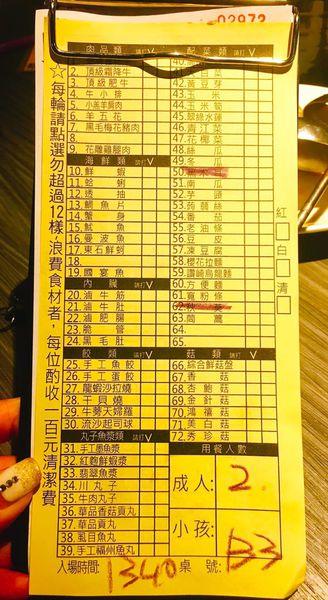 02973
☆每輪請點選勿超過12樣,浪費食材者,每位酌收一百元清潔費
肉品類 請打V
2. 頂級霜降牛
3. 頂級肥牛
4. 牛小排
5. 小羔羊腩肉
6. 羊五花
7. 黑毛梅花豬肉
8.
9. 花雕雞腿肉
海鮮類 請打V
10. 鮮蝦
11. 蛤蜊
12. 透抽
13. 鯛魚片
14. 蟹身
15. 魷魚
16. 曼波魚
17. 東石鮮蚵
18.
19. 國宴魚
內臟 請打V
20. 滷牛筋
21. 滷牛肚
22. 滷肥腸
23. 脆管
24. 黑毛肚
餃類 請打V
25. 手工魚餃
26. 手工蛋餃
27. 龍蝦沙拉燒
28. 干貝燒
29. 牛蒡天婦羅
30. 流沙起司球
丸子魚漿類 請打V
31. 手工墨魚漿
32. 紅麴鮮蝦漿
33. 翡翠魚漿
34. 川丸子
35. 牛肉丸子
36. 華品香菇貢丸
37. 華品貢丸
38. 虱目魚丸
39. 手工福州魚丸
配菜類 請打V
白菜
42. 黃豆芽
43. 玉米
44. 玉米筍
45. 翠綠水蓮
46. 青江菜
47. 花椰菜
48. 絲瓜
49. 冬瓜
50.
51. 南瓜
52. 芋頭
53. 蒟蒻絲
54. 茼蒿
55. 老油條
56. 豆皮
57. 凍豆腐
58. 櫻花拉麵
59. 讚岐烏龍麵
60. 方便麵
61. 寬粉條
62. 秋葵
63.
64.
65.
菇類 請打V
66. 綜合鮮菇盤
67. 香菇
68. 杏鮑菇
69. 金針菇
70. 鴻禧菇
71. 美白菇
72. 秀珍菇
用餐人數
成人: 2
小孩:
紅□白□清□
入場時間: 1340 桌號: B3